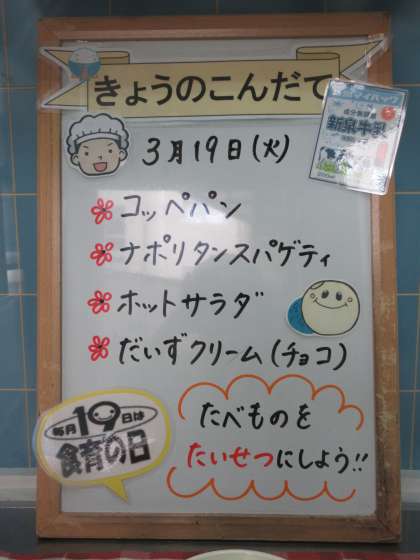 きょうのこんだて
3月19日(火)
コッペパン
ナポリタンスパゲティ
ホットサラダ
だいずクリーム(チョコ)
毎月19日は
食育の日
たべものを
たいせつにしよう!!
成分無調整
新泉牛乳